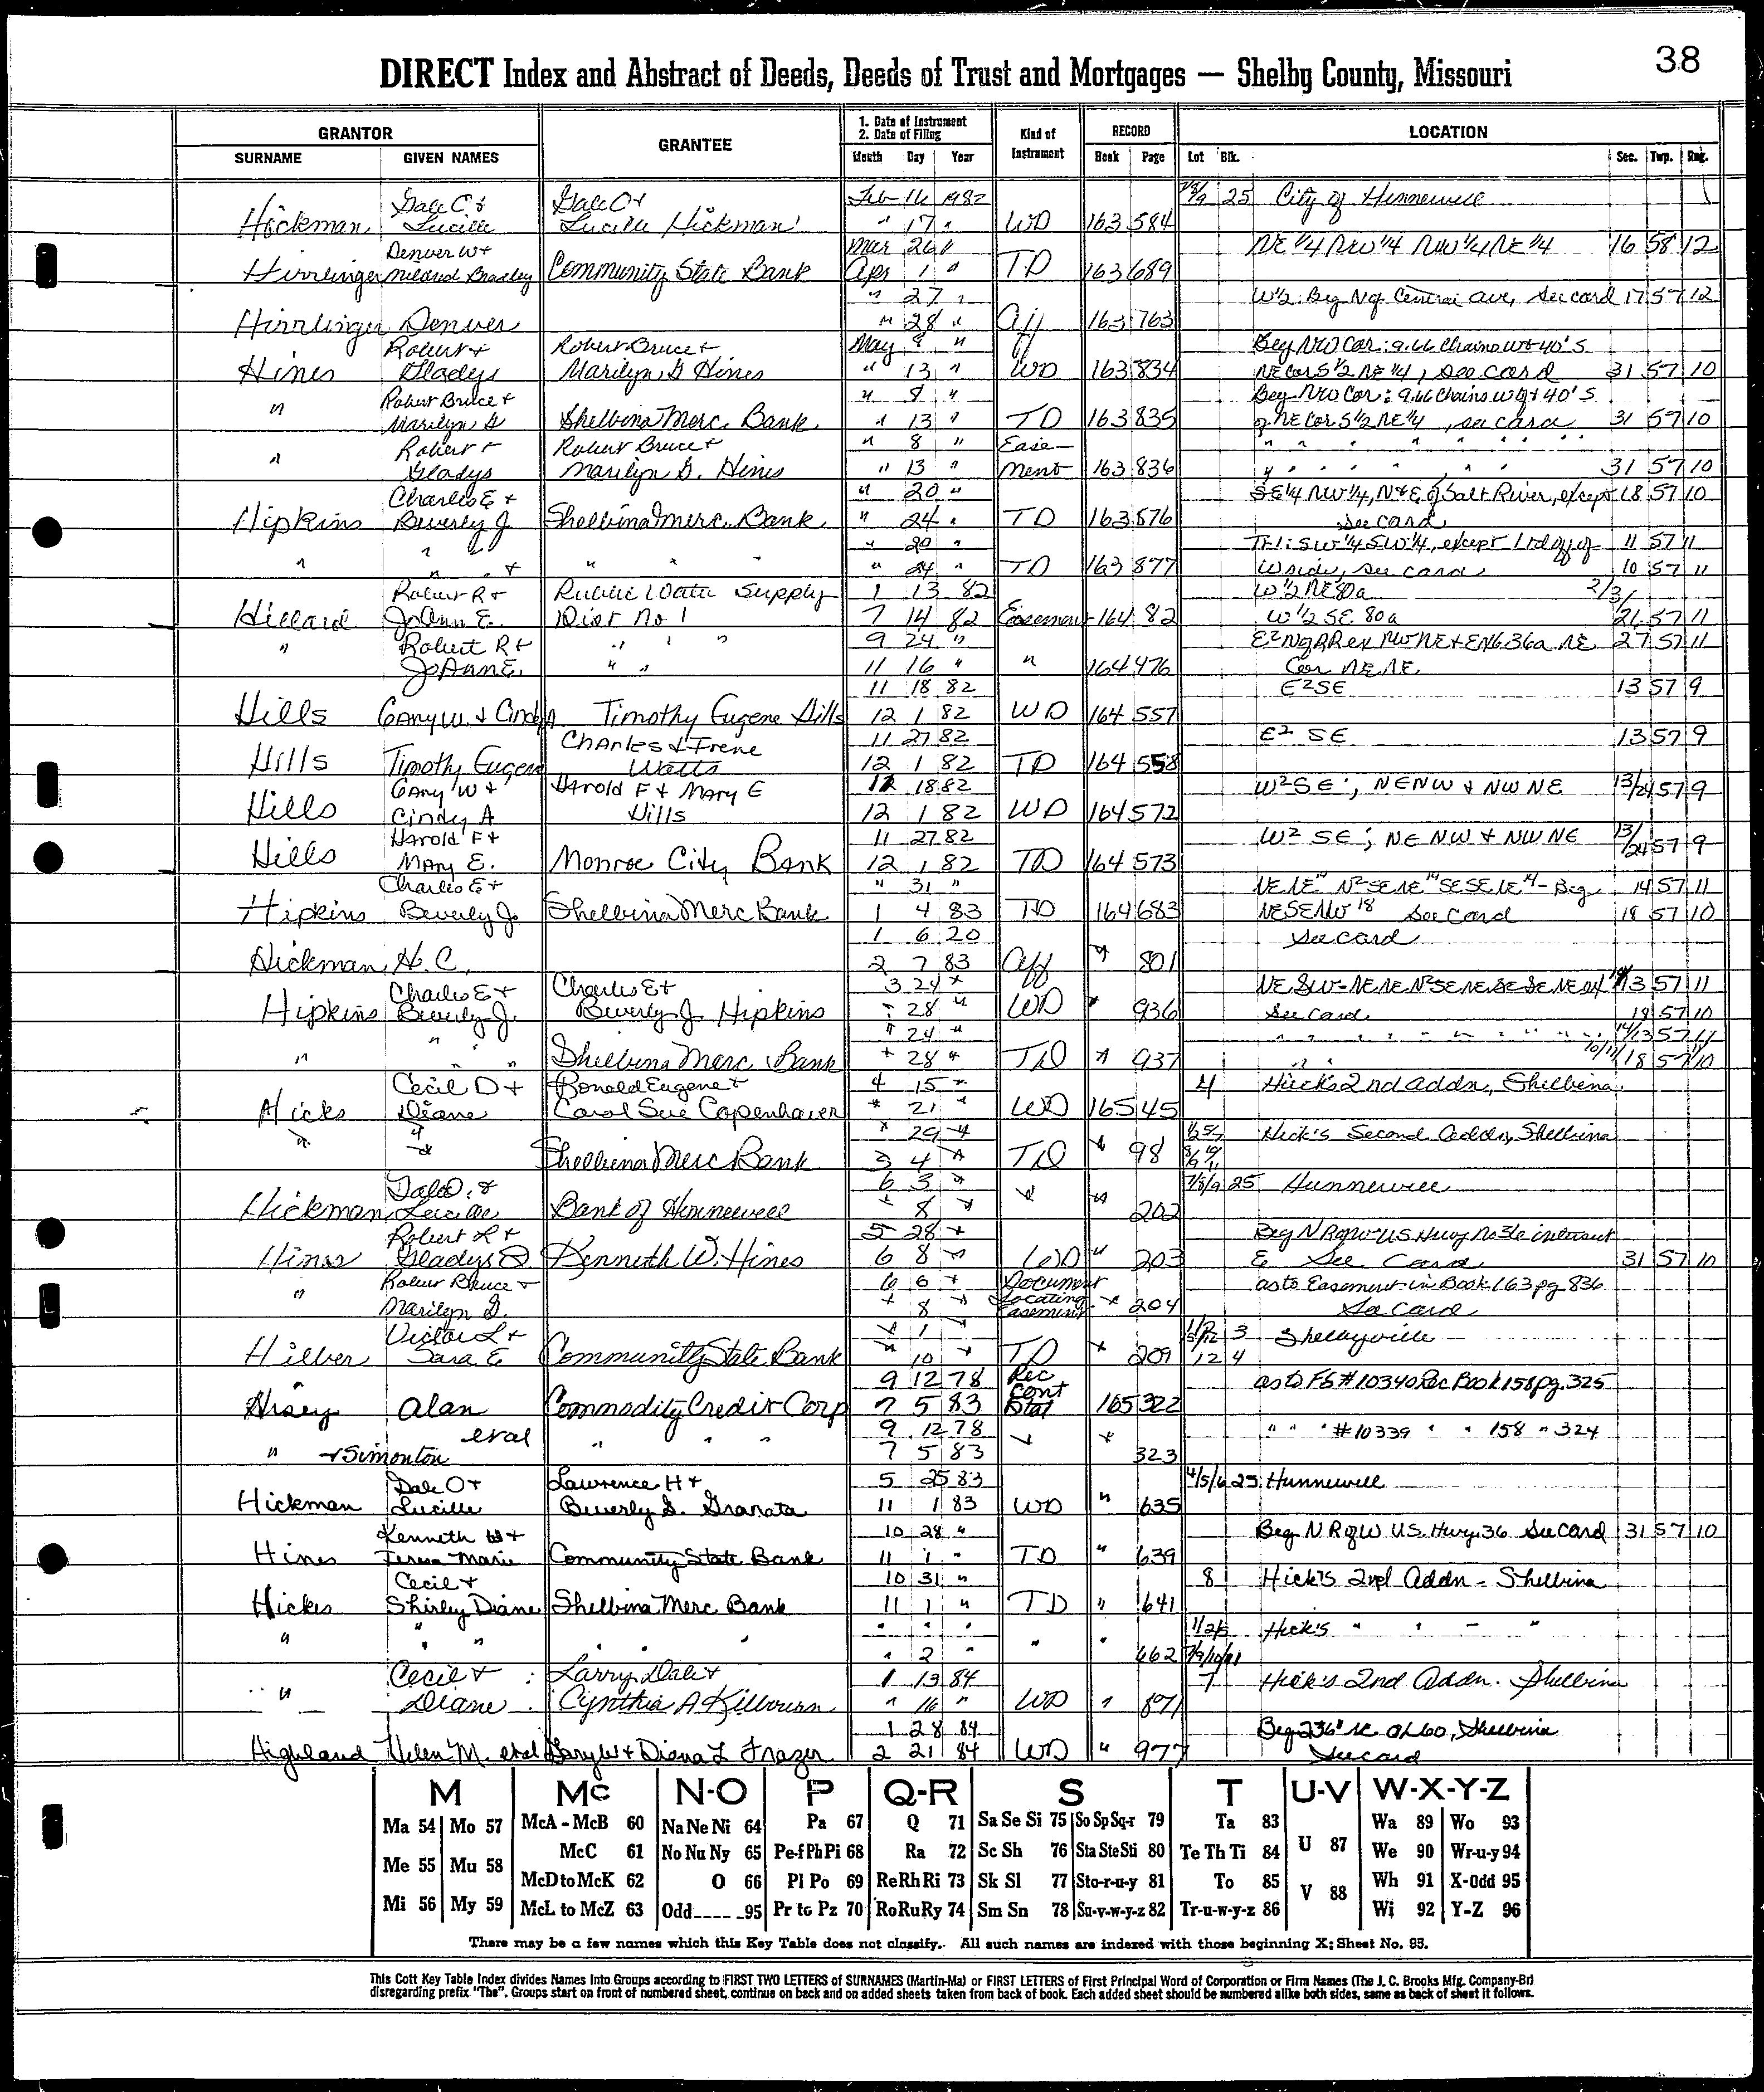 38
DIRECT Index and Abstract of Deeds, Deeds of Trust and Mortgages — Shelby County, Missouri
GRANTOR GRANTEE 1. Date of Instrument 2. Date of Filing Kind of Instrument RECORD LOCATION
SURNAME GIVEN NAMES Month Day Year Book Page Lot Blk. Sec. Twp. Rng.
Dale O + Dale O + Feb 16 1982 7/8/9 25 City of Hunnewell
Hickman Lucille Lucille Hickman " 17 " WD 163 584
Denver W + Mar 26 " NE 1/4 NW 1/4 NW 1/4 NE 1/4 16 58 12
Hirrlinger Mildred Bradley Community State Bank Apr 1 " TD 163 689
" 27 " W 1/2: Beg N of Central Ave, see card 17 57 12
Hirrlinger Denver " 28 " Aff 163 763
Robert + Robert Bruce + May 8 " Beg NW Cor: 9.66 Chains W + 40's
Hines Gladys Marilyn G Hines " 13 " WD 163 834 NE Cor S 1/2 NE 1/4, see card 31 57 10
Robert Bruce + " 8 " Beg NW Cor: 9.66 Chains W of + 40's
" Marilyn G Shelbina Merc. Bank " 13 " TD 163 835 of NE Cor S 1/2 NE 1/4, see card 31 57 10
Robert + Robert Bruce + " 8 " Ease- " " " " " " "
" Gladys Marilyn G. Hines " 13 " ment 163 836 " " " " " " 31 57 10
Charles E + " 20 " SE 1/4 NW 1/4, N + E of Salt River, except 18 57 10
Hipkins Beverly J Shelbina Merc. Bank " 24 " TD 163 876 see card
" " " 20 " Tr 1: SW 1/4 SW 1/4, except 1 rd off of 11 57 11
" " " + " " " " 24 " TD 163 877 W side, see card 10 57 11
Robert R + Public Water Supply 1 13 82 W 1/2 NE 80a 2/3/
Hillard JoAnn E. Dist No 1 7 14 82 Easement 164 82 W 1/2 SE 80a 26 57 11
" Robert R + " " " 9 24 " E2 N of RR ex NW NE + EX 6.36a NE 27 57 11
JoAnn E. " " 11 16 " " 164 476 Cor NE NE
11 18 82 E2 SE 13 57 9
Hills Gary W. & Cindy A. Timothy Eugene Hills 12 1 82 WD 164 557
Charles & Irene 11 27 82 E2 SE 13 57 9
Hills Timothy Eugene Watts 12 1 82 TD 164 558
Gary W + Harold F + Mary E 11 18 82 W2 SE; NENW & NW NE 13/24 57 9
Hills Cindy A Hills 12 1 82 WD 164 572
Harold F + 11 27 82 W2 SE; NE NW & NW NE 13/24 57 9
Hills Mary E. Monroe City Bank 12 1 82 TD 164 573
Charles E + " 31 " NE NE 14 N2 SE NE 14 SE SE NE 14 - Beg 14 57 11
Hipkins Beverly J. Shelbina Merc Bank 1 4 83 TD 164 683 NE SE NW 18 see card 18 57 10
1 6 20 see card
Hickman H. C. 2 7 83 Aff " 801
Charles E + Charles E + 3 24 " NE SW - NE NE N2 SE NE SE SE NE 14 13 57 11
Hipkins Beverly J. Beverly J. Hipkins " 28 " WD " 936 see card 18 57 10
" " " " 24 " " " " " " " " 14/13 57 11
Shelbina Merc. Bank " 28 " TD " 937 " " 10/11/18 57 10
Cecil D + Ronald Eugene + 4 15 " 4 Hick's 2nd addn, Shelbina
Hicks Diane Carol Sue Copenhaver " 21 " WD 165 45
" " " 29 " Hick's Second Addn, Shelbina
" Shelbina Merc Bank 3 4 " TD " 98
Dale O. & 6 3 " 7/8/9 25 Hunnewell
Hickman Lucille Bank of Hunnewell " 8 " " " 202
Robert L + 5 28 " Beg N R of W US Hwy No 36 intersect
Hines Gladys D Kenneth W. Hines 6 8 " WD " 203 E See Card 31 57 10
" Robert Bruce + 6 6 " Document as to Easement in Book 163 pg 836
Marilyn G. " 8 " Locating Easement " 204 See Card
Victor L + " 1 " 3 Shelbyville
Hilber Sara E Community State Bank " 10 " TD " 209 12 4
9 12 78 Rec as to FS #10340 Rec Book 158 pg. 325
Hisey Alan Commodity Credit Corp 7 5 83 Cont Stat 165 322
etal 9 12 78 " " " #10339 " " 158 " 324
" + Simonton " " " 7 5 83 " " 323
Dale O + Lawrence H + 5 25 83 4/5/6 25 Hunnewell
Hickman Lucille Beverly S. Granata 11 1 83 WD " 635
Kenneth W + 10 28 " Beg N R of W U.S. Hwy. 36 See Card 31 57 10
Hines Teresa Marie Community State Bank 11 1 " TD " 639
Cecil + 10 31 " 8 Hick's 2nd Addn - Shelbina
Hicks Shirley Diane Shelbina Merc Bank 11 1 " TD " 641
" " " " " " 1/2/3 Hick's " " - "
" " " " " 2 " " " 662 7/9/10/11
Cecil + Larry Dale + 1 13 84 7 Hick's 2nd Addn. Shelbina
" Diane Cynthia A Kilbourn " 16 " WD " 871
1 28 84 Beg 236' NE OL 60, Shelbina
Highland Helen M. etal Gary W + Diana L Frazer 2 21 84 WD " 977 see card
M Mc N-O P Q-R S T U-V W-X-Y-Z
Ma 54 Mo 57 McA - McB 60 Na Ne Ni 64 Pa 67 Q 71 Sa Se Si 75 So Sp Sq-r 79 Ta 83 Wa 89 Wo 93
Me 55 Mu 58 McC 61 No Nu Ny 65 Pe-f Ph Pi 68 Ra 72 Sc Sh 76 Sta Ste Sti 80 Te Th Ti 84 U 87 We 90 Wr-u-y 94
McD to McK 62 O 66 Pl Po 69 Re Rh Ri 73 Sk Sl 77 Sto-r-u-y 81 To 85 V 88 Wh 91 X-Odd 95
Mi 56 My 59 McL to McZ 63 Odd____95 Pr to Pz 70 Ro Ru Ry 74 Sm Sn 78 Su-v-w-y-z 82 Tr-u-w-y-z 86 Wi 92 Y-Z 96
There may be a few names which this Key Table does not classify. All such names are indexed with those beginning X; Sheet No. 95.
This Cott Key Table Index divides Names Into Groups according to FIRST TWO LETTERS of SURNAMES (Martin-Ma) or FIRST LETTERS of First Principal Word of Corporation or Firm Names (The J. C. Brooks Mfg. Company-Br)
disregarding prefix "The". Groups start on front of numbered sheet, continue on back and on added sheets taken from back of book. Each added sheet should be numbered alike both sides, same as back of sheet it follows.